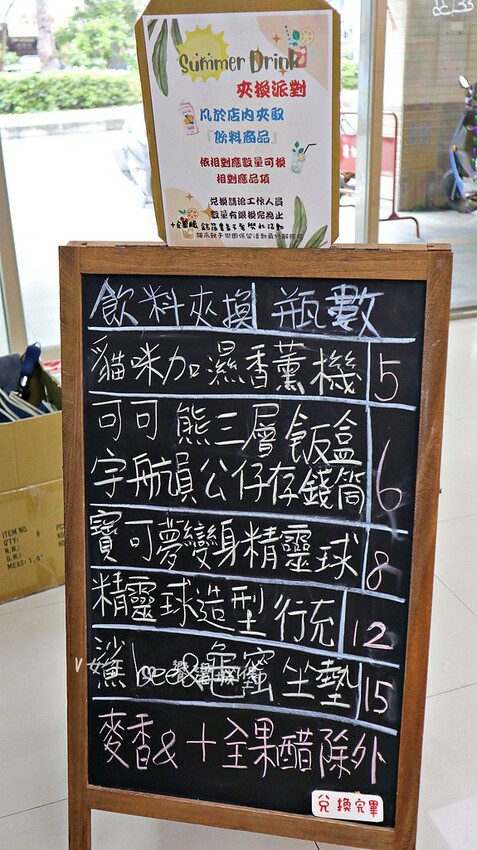 Summer Drink
夾換派對
凡於店內夾取
『飲料商品』
依相對應數量可換
相對應品項
兌換請洽工作人員
數量有限換完為止
飲料夾換 瓶數
貓咪加濕香薰機 5
可可熊三層飯盒
宇航員公仔存錢筒 6
寶可夢變身精靈球 8
精靈球造型行充 12
鯊bee&龜蜜坐墊 15
麥香&十全果醋除外
兌換完畢
ITEM NO.
QTY:
N.W.:
G.W.:
MEAS: